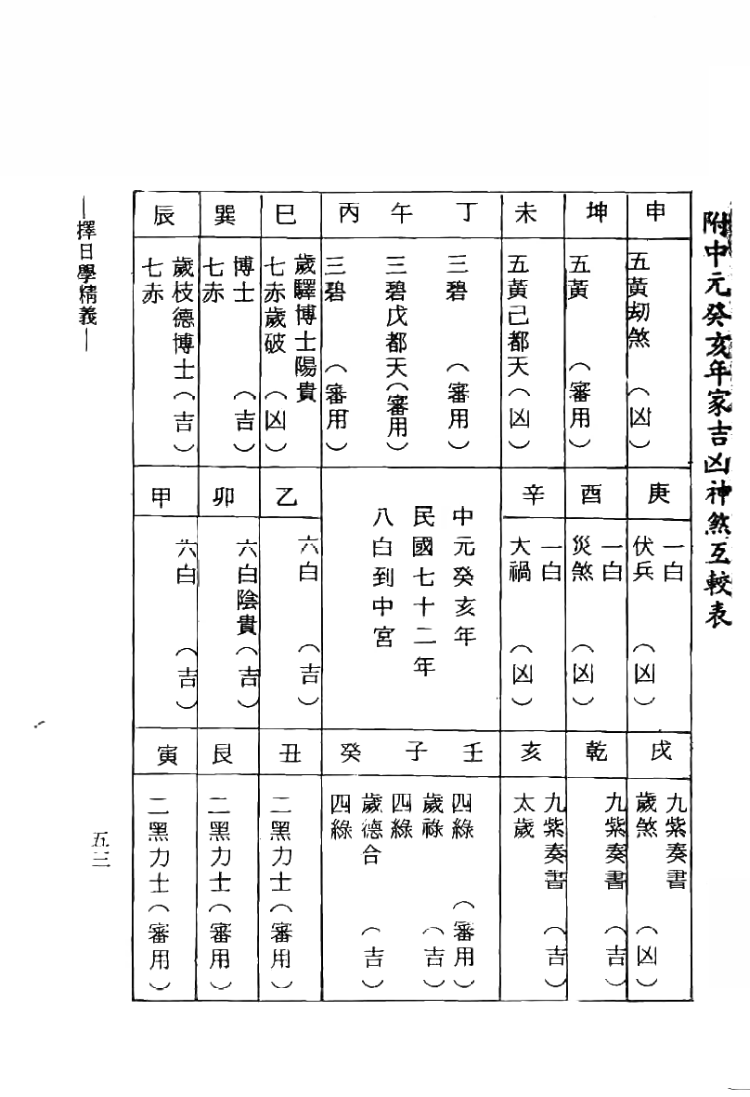 附中元癸亥年家吉凶神煞互較表
申
五黃劫煞（凶）
坤
五黃（審用）
未
五黃己都天（凶）
丁
三碧（審用）
午
三碧戊都天（審用）
丙
三碧（審用）
巳
歲驛博士陽貴
七赤歲破（凶）
巽
博士（吉）
七赤
辰
歲枝德博士（吉）
七赤
庚
一白
伏兵（凶）
酉
一白
災煞（凶）
辛
一白
大禍（凶）
中元癸亥年
民國七十二年
八白到中宮
乙
六白（吉）
卯
六白陰貴（吉）
甲
六白（吉）
戌
九紫奏書
歲煞（凶）
乾
九紫奏書（吉）
亥
九紫奏書（吉）
太歲
壬
四綠（審用）
子
歲祿（吉）
四綠
癸
歲德合（吉）
四綠
丑
二黑力士（審用）
艮
二黑力士（審用）
寅
二黑力士（審用）
—擇日學精義—
五三